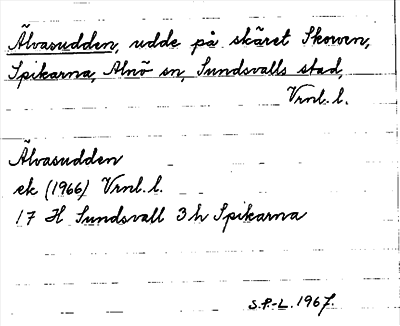 Älvasudden, udde på skäret Skorven,
Spikarna, Alnö sn, Sundsvalls stad,
Vrnl. l.
Älvasudden
ek (1966) Vrnl. l.
17 H Sundsvall 3 h Spikarna
S.P.-L. 1967.